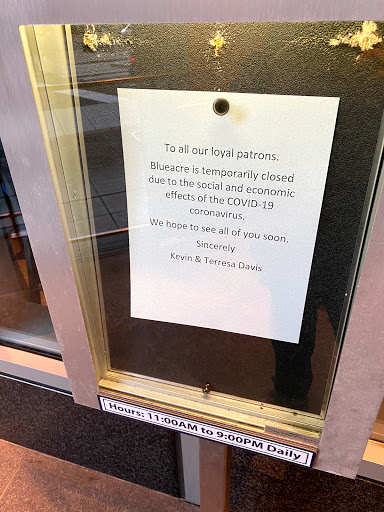 To all our loyal patrons.
Blueacre is temporarily closed
due to the social and economic
effects of the COVID-19
coronavirus.
We hope to see all of you soon.
Sincerely
Kevin & Terresa Davis
Hours: 11:00AM to 9:00PM Daily